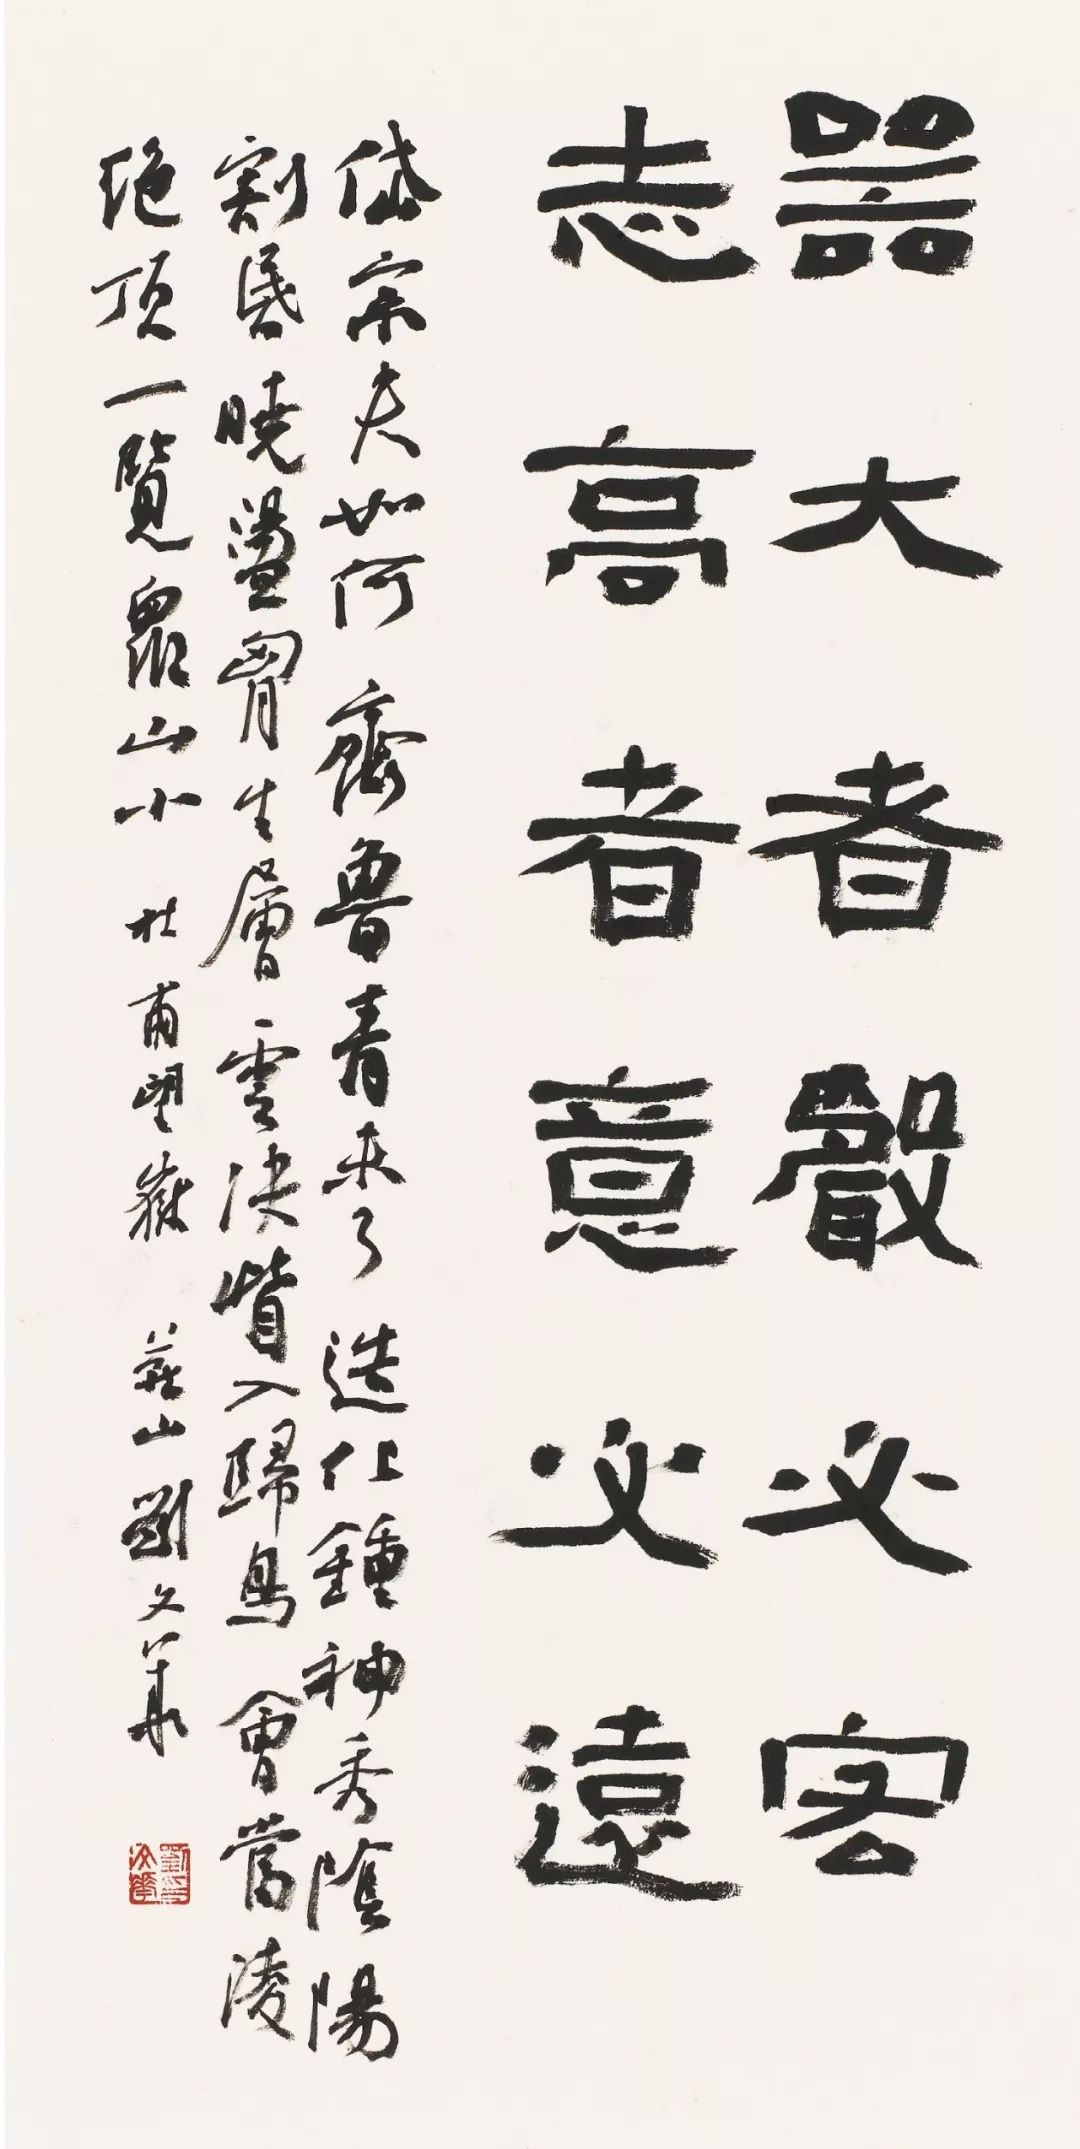 器大者聲必宏
志高者意必遠
岱宗夫如何齊魯青未了造化鍾神秀陰陽
割昬曉盪胷生層雲決眥入歸鳥會當陵
絕頂一覽眾山小杜甫望嶽燕山劉文華
劉印文華